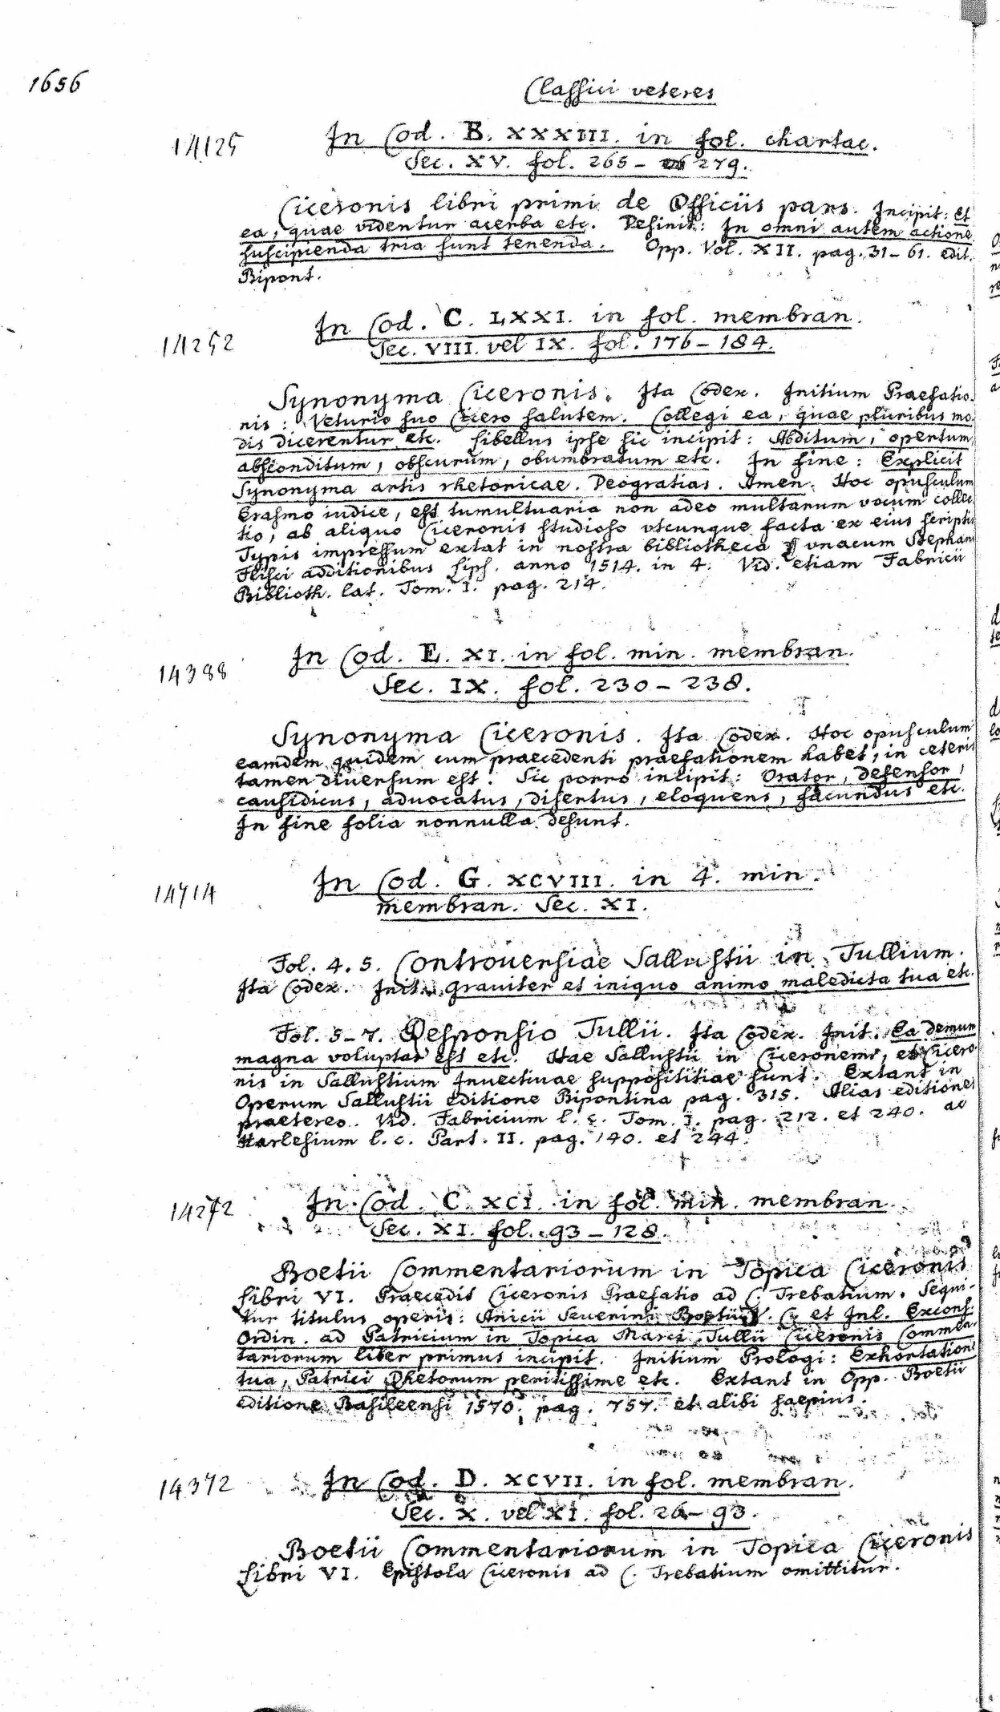 1656
Classici veteres
14125
In Cod. B. XXXIII. in fol. chartac.
Sec. XV. fol. 265 - 279.
Ciceronis libri primi de Officiis pars. Incipit: Et
ea, quae videntur acerba etc. Desinit: In omni autem actione
suscipienda tria sunt tenenda. Opp. Vol. XII. pag. 31-61. edit.
Bipont.
14252
In Cod. C. LXXI. in fol. membran.
Sec. VIII. vel IX. fol. 176-184.
Synonyma Ciceronis. Ita Codex. Initium Praefatio-
nis: Veturio suo Cicero salutem. Collegi ea, quae pluribus mo-
dis dicerentur etc. Libellus ipse sic incipit: Abditum, opertum
absconditum, obscurum, obumbratum etc. In fine: Explicit
Synonyma artis rhetoricae. Deogratias. Amen. Hoc opusculum
Erasmo iudice, est tumultuaria non adeo multarum vocum collec
tio, ab aliquo Ciceronis studioso vtcunque facta ex eius scriptis
Typis impressum extat in nostra bibliotheca vnacum Stephani
Flisci additionibus Lips. anno 1514. in 4. Vid. etiam Fabricii
Biblioth. lat. Tom. I. pag. 214.
14388
In Cod. E. XI. in fol. min. membran.
Sec. IX. fol. 230-238.
Synonyma Ciceronis. Ita Codex. Hoc opusculum
eamdem quidem cum praecedenti praefationem habet, in ceteris
tamen diversum est. Sic porro incipit: Orator, defensor,
causidicus, advocatus, disertus, eloquens, facundus etc.
In fine folia nonnulla desunt.
14714
In Cod. G. XCVIII. in 4. min.
membran. Sec. XI.
Fol. 4. 5. Controuersiae Sallustii in Tullium.
Ita Codex. Init. Grauiter et iniquo animo maledicta tua etc.
Fol. 5-7. Responsio Tullii. Ita Codex. Init. Ea demum
magna voluptas est etc. Hae Sallustii in Ciceronem, et Cicero
nis in Sallustium Inuectiuae supposititiae sunt. Extant in
Operum Sallustii editione Bipontina pag. 315. Alias editiones
praetereo. Vid. Fabricium l. c. Tom. I. pag. 212. et 240. ac
Harlesium l. c. Part. II. pag. 140. et 244.
14272
In Cod. C. XCI. in fol. min. membran.
Sec. XI. fol. 93-128.
Boetii Commentariorum in Topica Ciceronis
Libri VI. Praecedit Ciceronis Praefatio ad C. Trebatium. Sequi-
tur titulus operis: Anicii Severini Boetii V. C. et Inl. Excons.
Ordin. ad Patricium in Topica Marci Tullii Ciceronis Commen-
tariorum liber primus incipit. Initium Prologi: Exhortatione
tua, Patrici Rhetorum peritissime etc. Extant in Opp. Boetii
editione Basileensi 1570. pag. 757. et alibi saepius.
14372
In Cod. D. XCVII. in fol. membran.
Sec. X. vel XI. fol. 26-93.
Boetii Commentariorum in Topica Ciceronis
Libri VI. Epistola Ciceronis ad C. Trebatium omittitur.